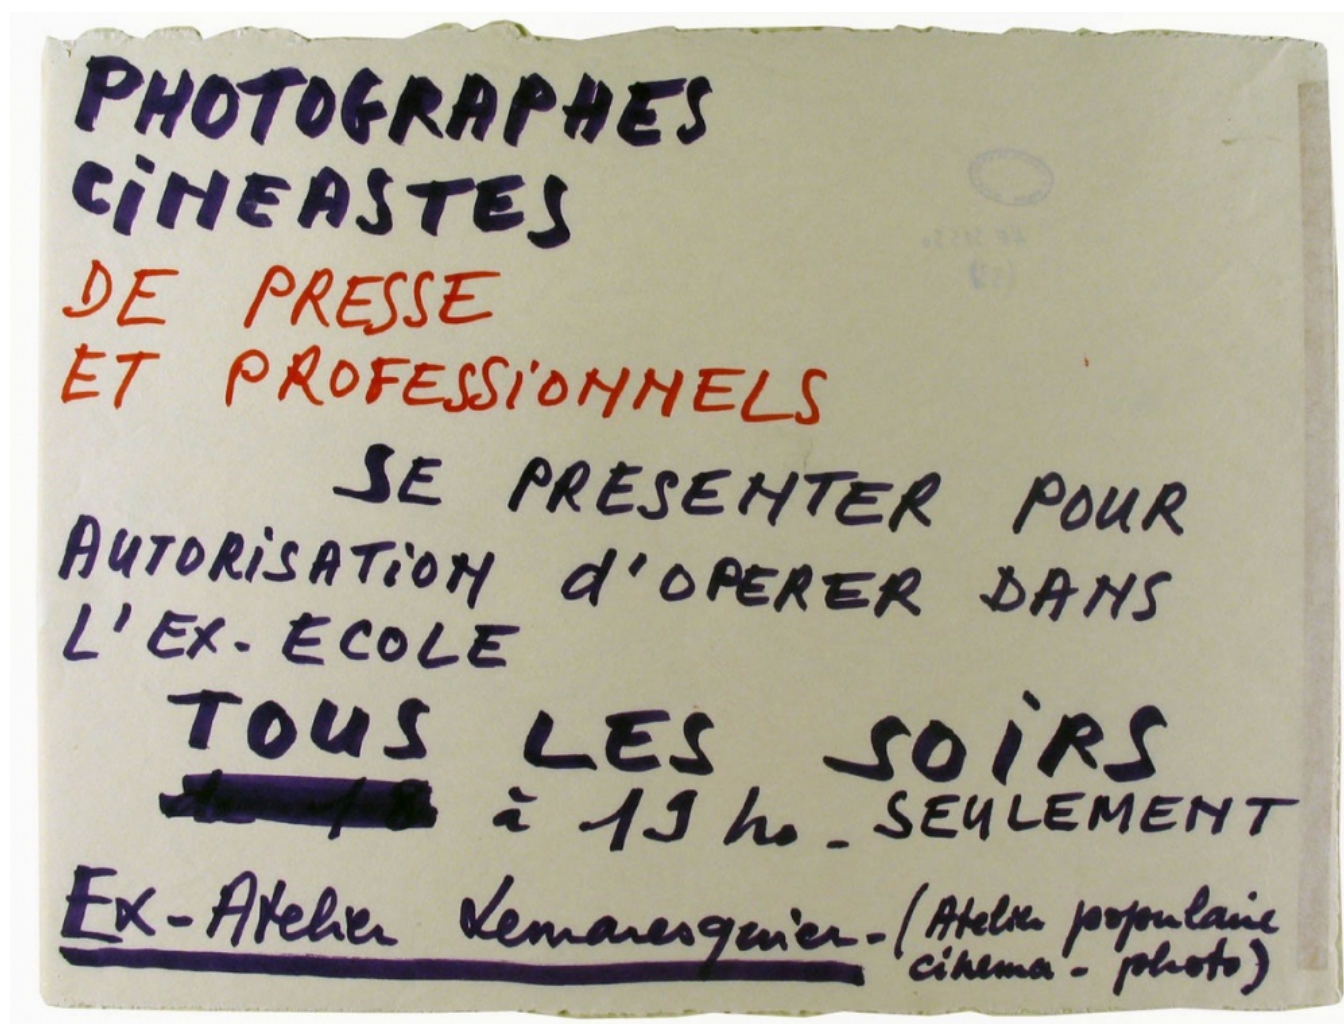 PHOTOGRAPHES
CiNEASTES
DE PRESSE
ET PROFESSiONNELS
SE PRESENTER POUR
AUTORiSATiON d'OPERER DANS
L'EX-ECOLE
TOUS LES SOiRS
à 19 h. - SEULEMENT
Ex-Atelier Lemaresquier - (Atelier populaire
cinema - photo)